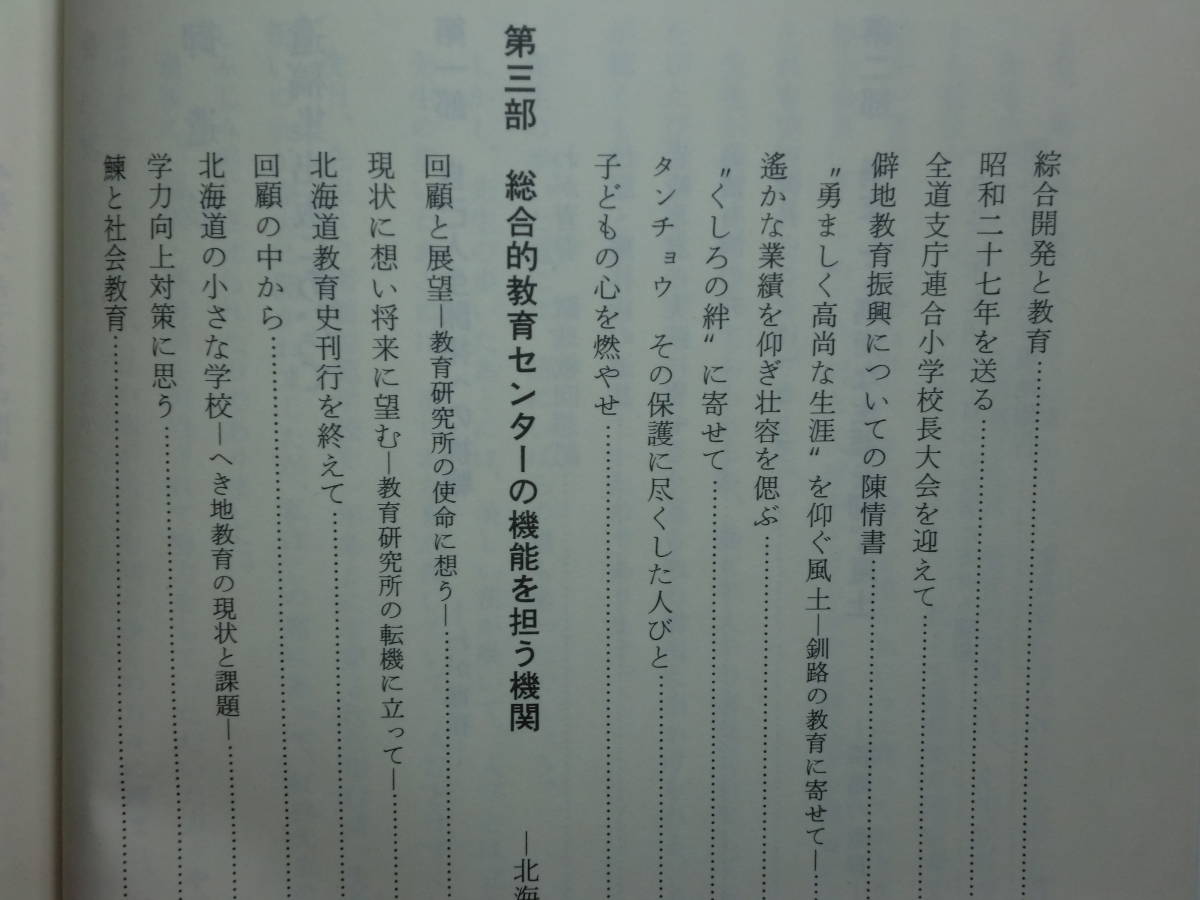 綜合開発と教育……………………
昭和二十七年を送る……………………
全道支庁連合小学校長大会を迎えて……………………
僻地教育振興についての陳情書……………………
〝勇ましく高尚な生涯〟を仰ぐ風土―釧路の教育に寄せて―……
遙かな業績を仰ぎ壮容を偲ぶ……………………
〝くしろの絆〟に寄せて……………………
タンチョウ　その保護に尽くした人びと……………………
子どもの心を燃やせ……………………
第三部　総合的教育センターの機能を担う機関　　―北海
回顧と展望―教育研究所の使命に想う―……………………
現状に想い将来に望む―教育研究所の転機に立って―……………
北海道教育史刊行を終えて……………………
回顧の中から……………………
北海道の小さな学校―へき地教育の現状と課題―……………
学力向上対策に思う……………………
鰊と社会教育……………………